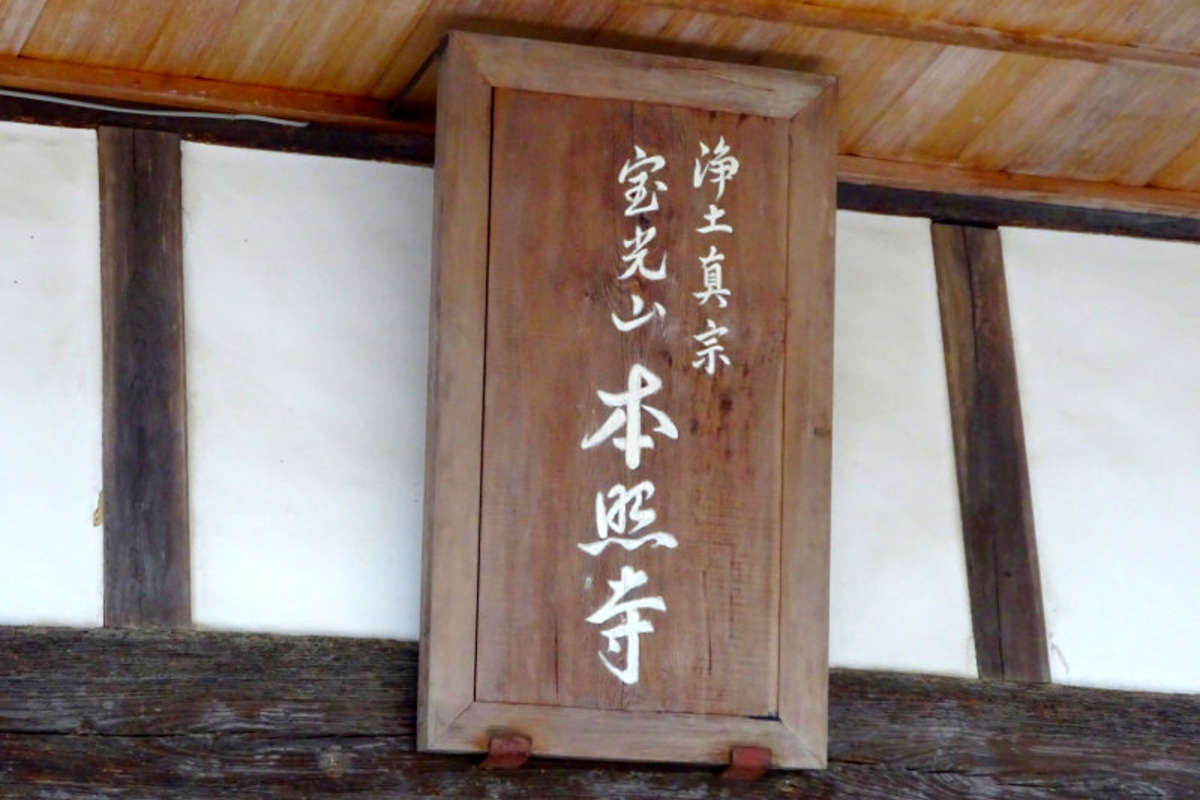 浄土真宗
宝光山本照寺